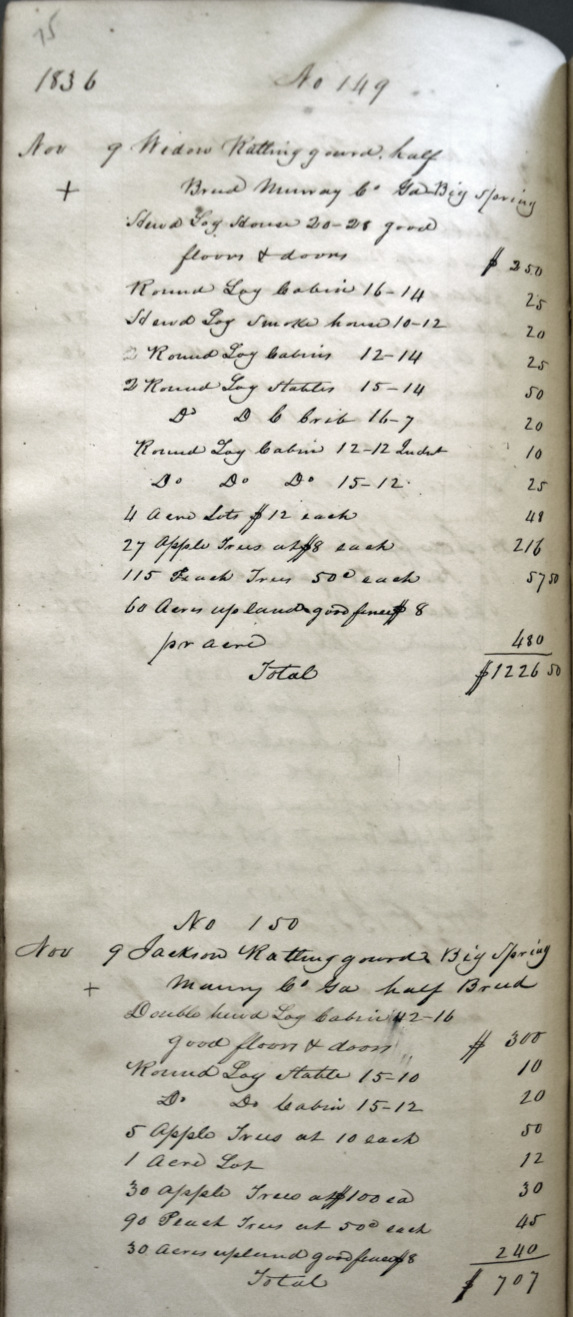 15
1836 No 149
Nov 9 Widow Rattinggourd. half
+ Breed Murray Co Ga Big Spring
Hewd Log House 20-28 good
floors & doors $250
Round Log Cabin 16-14 25
Hewd Log Smoke house 10-12 20
2 Round Log Cabins 12-14 25
2 Round Log Stables 15-14 50
Do D C Crib 16-7 20
Round Log Cabin 12-12 10
Do Do Do 15-12 25
4 Acre Lots $12 each 48
27 Apple Trees at $8 each 216
115 Peach Trees 50c each 57 50
60 Acres upland good fence $8
pr acre 480
Total $1226 50
No 150
Nov 9 Jackson Rattinggourd Big Spring
+ Maury Co Ga half Breed
Double hewd Log Cabin 42-16
good floors & doors $300
Round Log Stable 15-10 10
Do Do Cabin 15-12 20
5 Apple Trees at 10 each 50
1 Acre Lot 12
30 Apple Trees at $100 ea 30
90 Peach Trees at 50c each 45
30 Acres upland good fence $8 240
Total $707